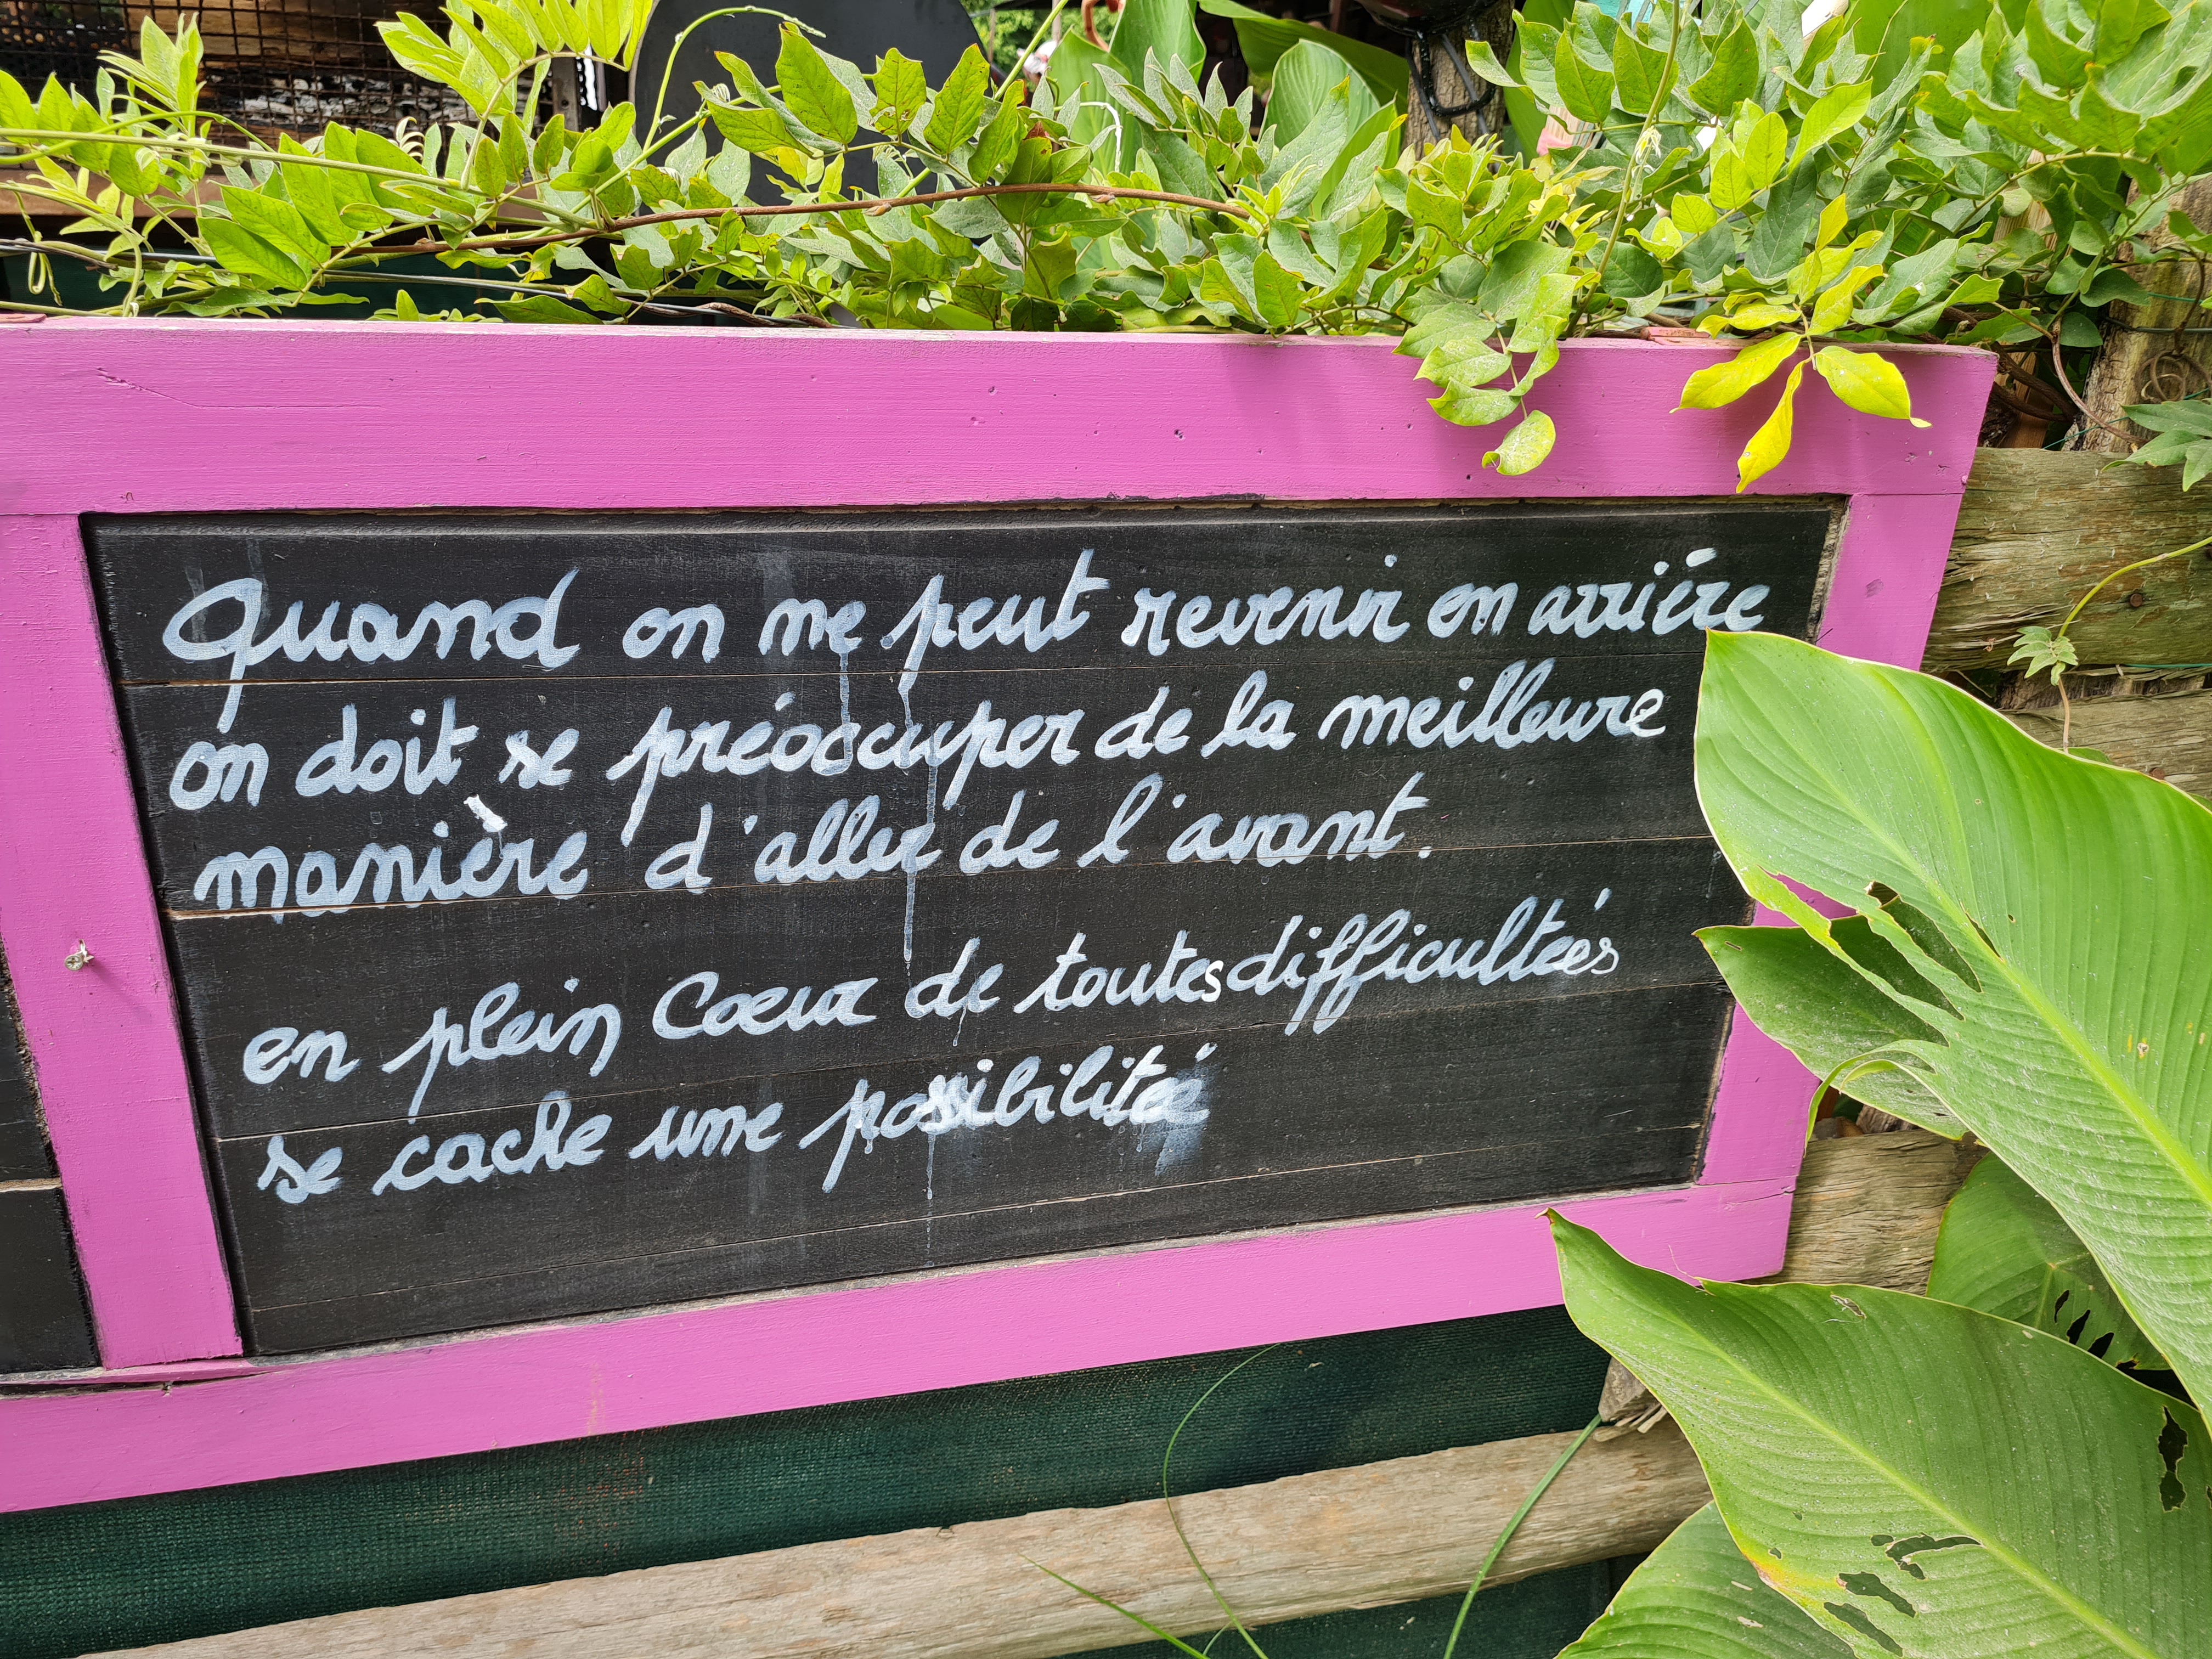 Quand on ne peut revenir en arriére
on doit se préoccuper de la meilleure
manière d'aller de l'avant.
en plein Coeur de toutes difficultées
se cache une possibilitée